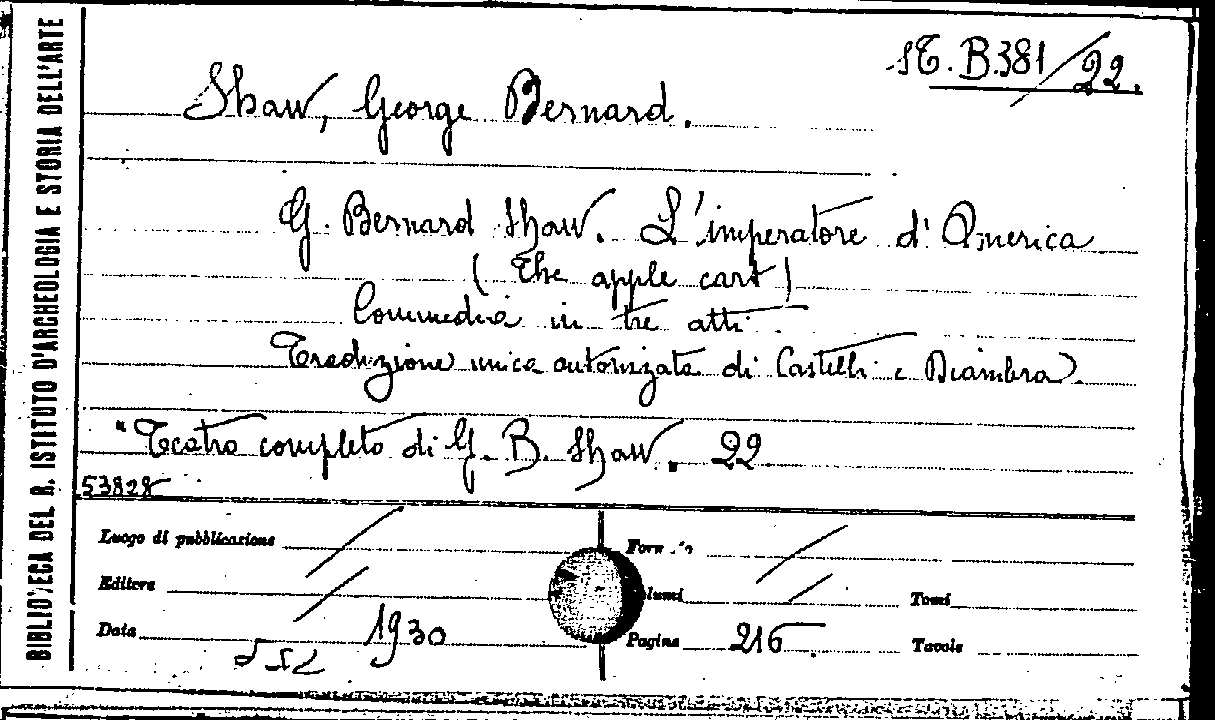 BIBLIOTECA DEL R. ISTITUTO D'ARCHEOLOGIA E STORIA DELL'ARTE
ST. B.381/22.
Shaw, George Bernard.
G. Bernard Shaw. L'imperatore d'America
(The apple cart)
Commedia in tre atti.
Traduzione unica autorizzata di Castelli e Diambra.
"Teatro completo di G. B. Shaw. 22
53828
Luogo di pubblicazione / Formato /
Editore / lumi / Tomi
Data 1930 Pagine 216. Tavole